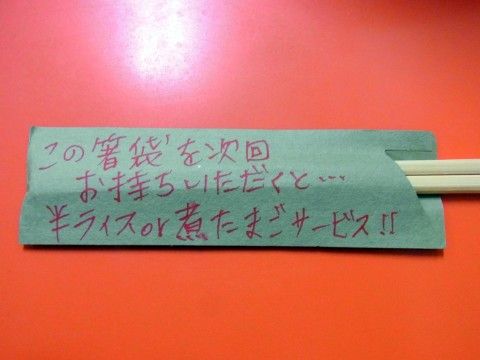 この箸袋を次回
お持ちいただくと…
半ライスor煮たまごサービス!!